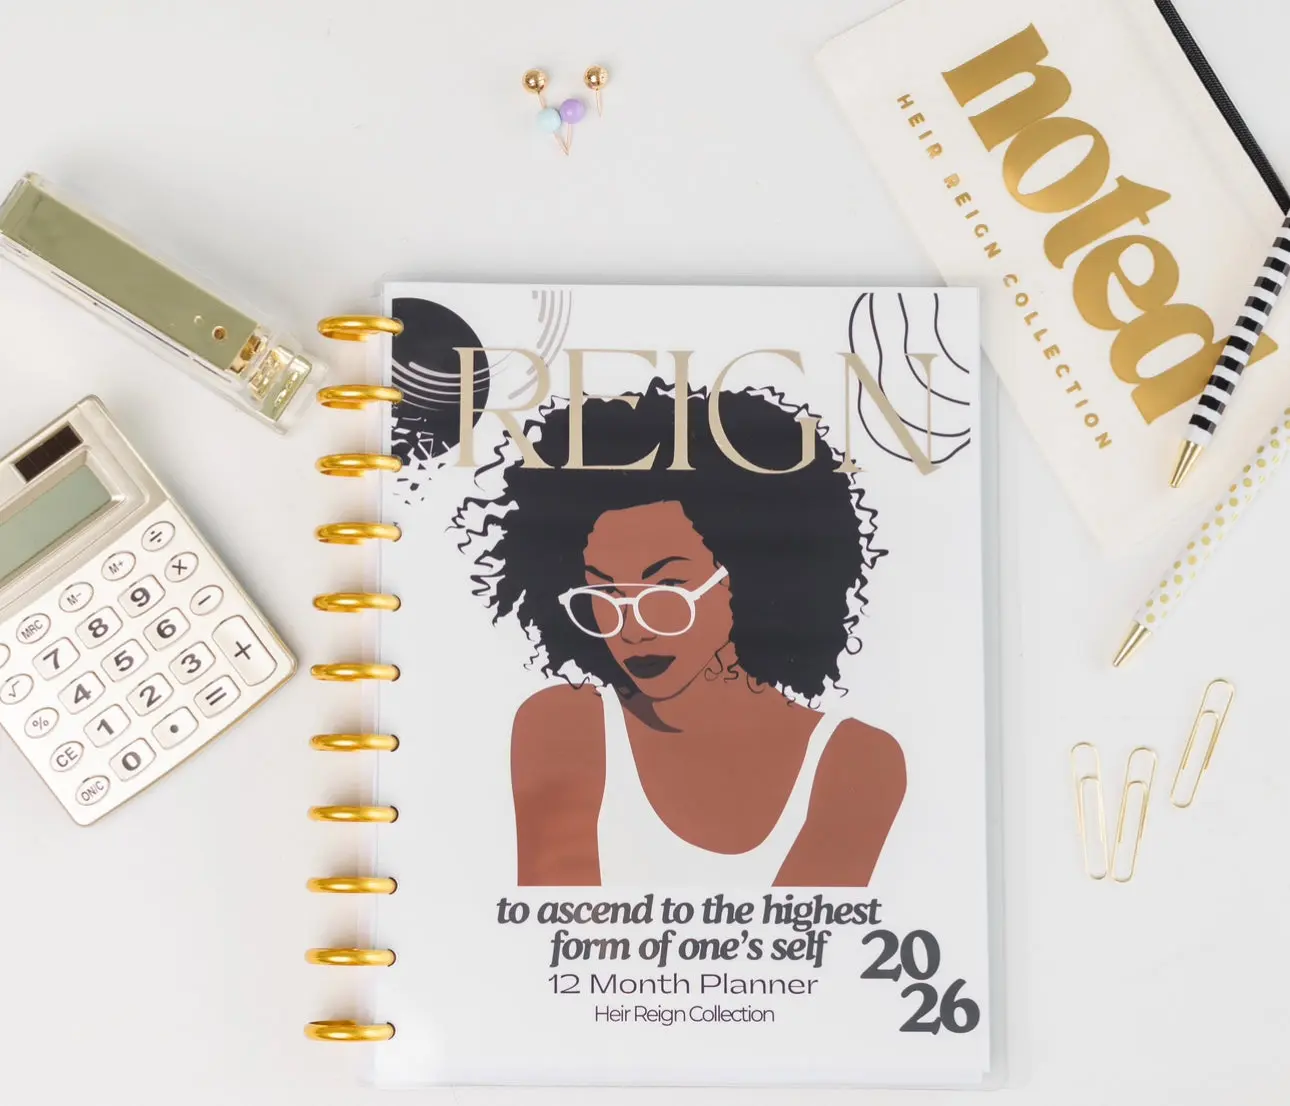 noted
HEIR REIGN COLLECTION
REIGN
to ascend to the highest
form of one's self
12 Month Planner
Heir Reign Collection
20
26
÷
M+ ×
MRC M− 9 −
7 8 6
√ 4 5 3 +
% 1 2 =
CE 0 •
ON/C